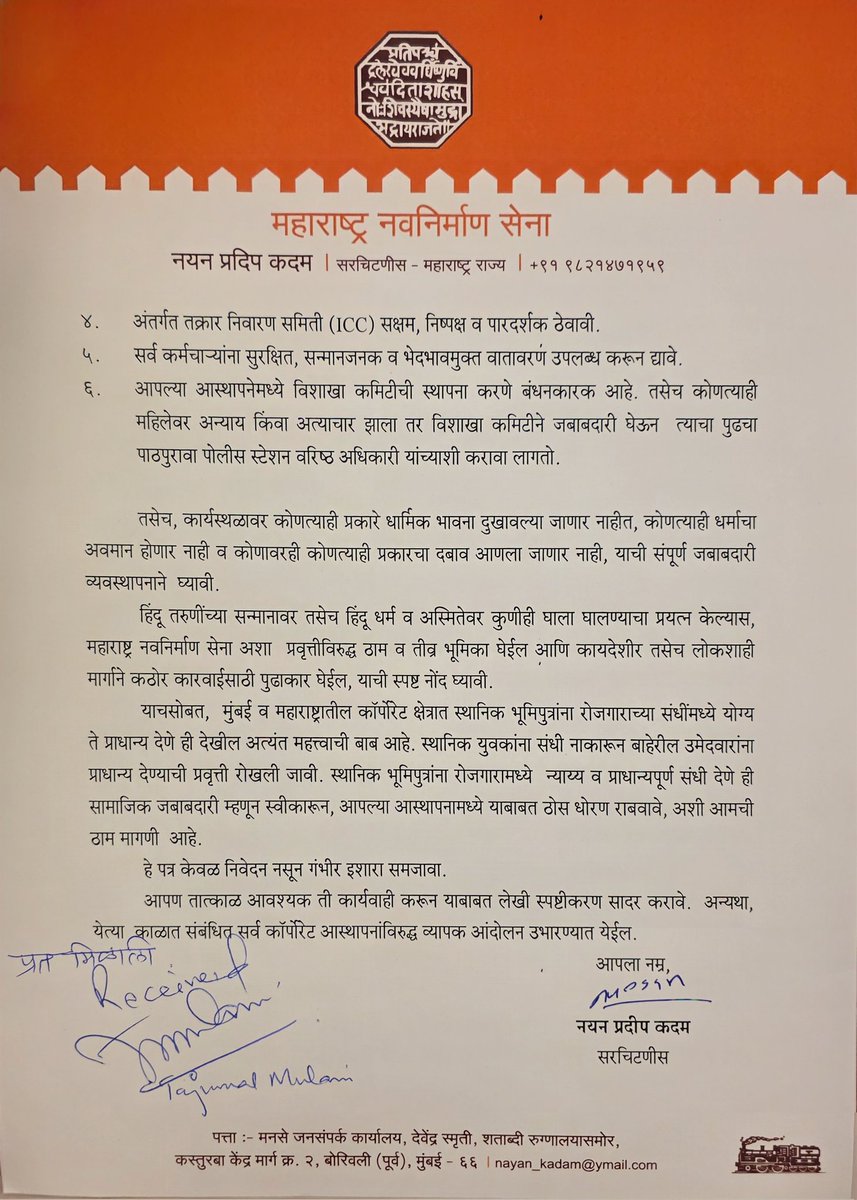 प्रतिपच्चं
द्रलेखेव वर्धिष्णुर्वि
श्ववंदिता शाहसू
नोः शिवस्यैषा मुद्रा
भद्राय राजते
महाराष्ट्र नवनिर्माण सेना
नयन प्रदिप कदम | सरचिटणीस - महाराष्ट्र राज्य | +९१ ९८२१४७१९५९
४. अंतर्गत तक्रार निवारण समिती (ICC) सक्षम, निष्पक्ष व पारदर्शक ठेवावी.
५. सर्व कर्मचाऱ्यांना सुरक्षित, सन्मानजनक व भेदभावमुक्त वातावरण उपलब्ध करून द्यावे.
६. आपल्या आस्थापनेमध्ये विशाखा कमिटीची स्थापना करणे बंधनकारक आहे. तसेच कोणत्याही
महिलेवर अन्याय किंवा अत्याचार झाला तर विशाखा कमिटीने जबाबदारी घेऊन त्याचा पुढचा
पाठपुरावा पोलीस स्टेशन वरिष्ठ अधिकारी यांच्याशी करावा लागतो.
तसेच, कार्यस्थळावर कोणत्याही प्रकारे धार्मिक भावना दुखावल्या जाणार नाहीत, कोणत्याही धर्माचा
अवमान होणार नाही व कोणावरही कोणत्याही प्रकारचा दबाव आणला जाणार नाही, याची संपूर्ण जबाबदारी
व्यवस्थापनाने घ्यावी.
हिंदू तरुणींच्या सन्मानावर तसेच हिंदू धर्म व अस्मितेवर कुणीही घाला घालण्याचा प्रयत्न केल्यास,
महाराष्ट्र नवनिर्माण सेना अशा प्रवृत्तीविरुद्ध ठाम व तीव्र भूमिका घेईल आणि कायदेशीर तसेच लोकशाही
मार्गाने कठोर कारवाईसाठी पुढाकार घेईल, याची स्पष्ट नोंद घ्यावी.
याचसोबत, मुंबई व महाराष्ट्रातील कॉर्पोरेट क्षेत्रात स्थानिक भूमिपुत्रांना रोजगाराच्या संधींमध्ये योग्य
ते प्राधान्य देणे ही देखील अत्यंत महत्त्वाची बाब आहे. स्थानिक युवकांना संधी नाकारून बाहेरील उमेदवारांना
प्राधान्य देण्याची प्रवृत्ती रोखली जावी. स्थानिक भूमिपुत्रांना रोजगारामध्ये न्याय्य व प्राधान्यपूर्ण संधी देणे ही
सामाजिक जबाबदारी म्हणून स्वीकारून, आपल्या आस्थापनामध्ये याबाबत ठोस धोरण राबवावे, अशी आमची
ठाम मागणी आहे.
हे पत्र केवळ निवेदन नसून गंभीर इशारा समजावा.
आपण तात्काळ आवश्यक ती कार्यवाही करून याबाबत लेखी स्पष्टीकरण सादर करावे. अन्यथा,
येत्या काळात संबंधित सर्व कॉर्पोरेट आस्थापनांविरुद्ध व्यापक आंदोलन उभारण्यात येईल.
प्रत मिळाली
Received
Tajummal Mulani
आपला नम्र,
नयन प्रदीप कदम
सरचिटणीस
पत्ता :- मनसे जनसंपर्क कार्यालय, देवेंद्र स्मृती, शताब्दी रुग्णालयासमोर,
कस्तुरबा केंद्र मार्ग क्र. २, बोरिवली (पूर्व), मुंबई - ६६ | nayan_kadam@ymail.com